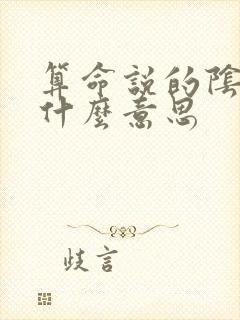 算命說的陰
什麼意思
歧言